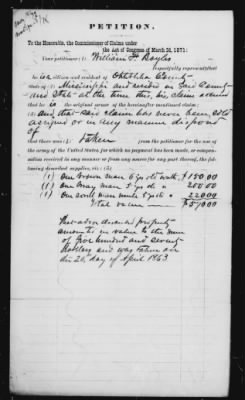 PETITION.
To the Honorable, the Commissioner of Claims under
the Act of Congress of March 3d, 1871:
Your petitioner (1) William F. Boyles
respectfully represents that
he is a citizen and resident of Oktibbeha County
State of Mississippi and resided in said County
and State at the time this, his claim accrued
that he is the original owner of the hereinafter mentioned claim;
(2) and that said claim has never been sold
assigned or in any manner disposed
of
that there was (3) taken from the petitioner for the use of the
army of the United States for which no payment has been made, or compen-
sation received in any manner or from any source for any part thereof, the fol-
lowing described supplies, viz: (4)
(1) One brown mare 6 yrs old worth $150.00
(1) One Gray mare 5 yr old " 200.00
(1) One mule 4 yr old " 220.00
Total value $570.00
That above described property
amounts in value to the sum
of five hundred and seventy
dollars and was taken on
the 21 day of April 1863